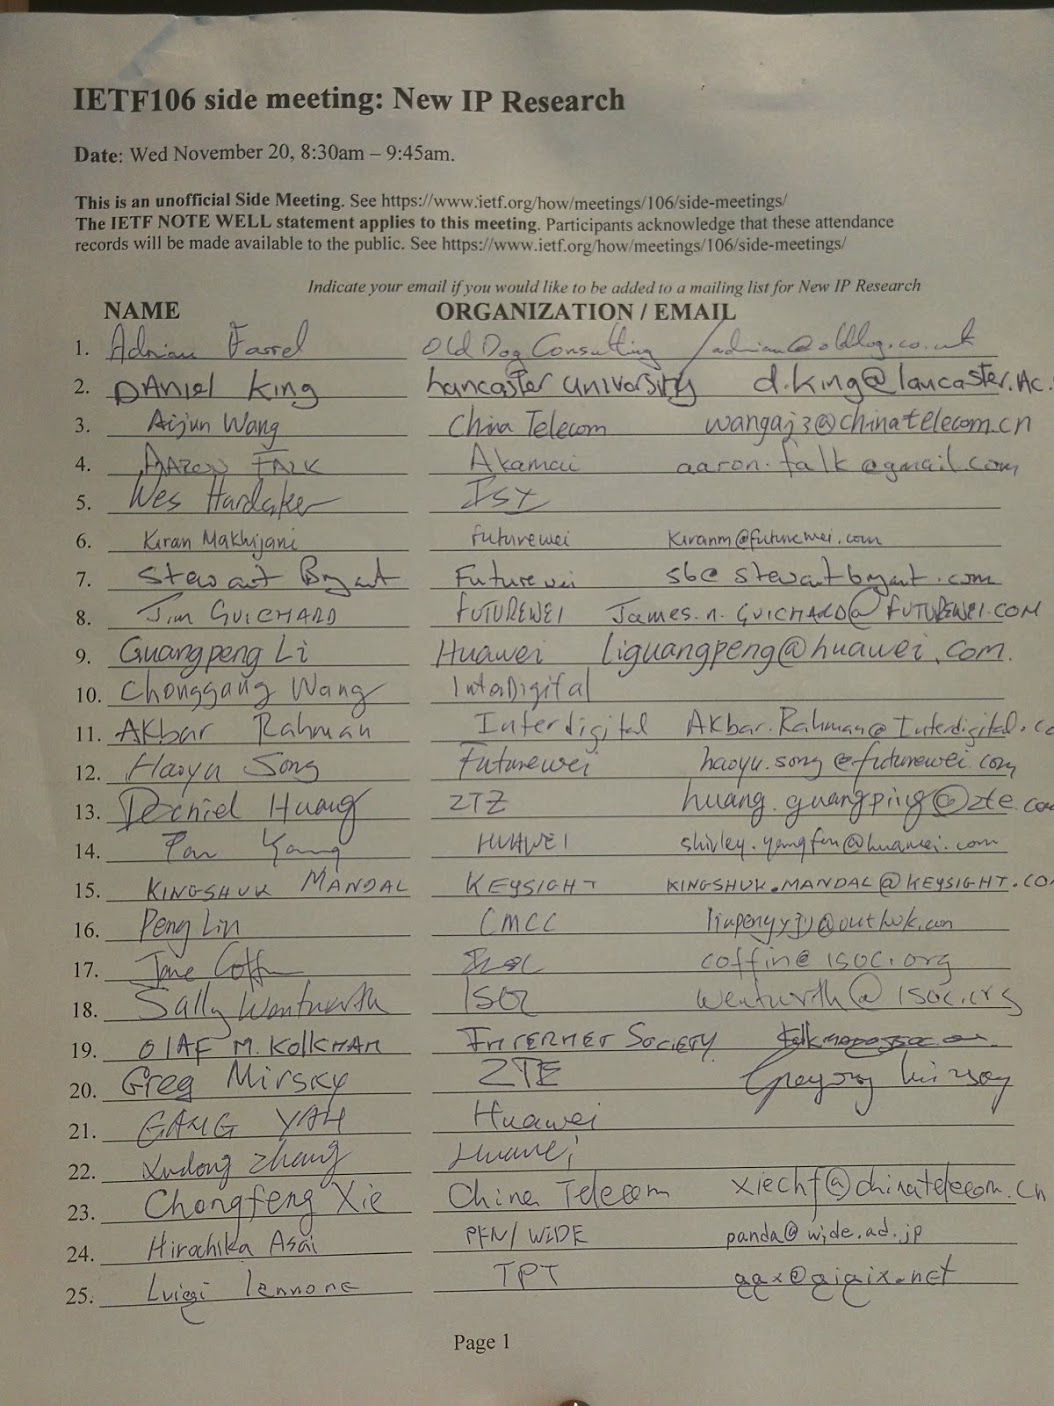 IETF106 side meeting: New IP Research
Date: Wed November 20, 8:30am – 9:45am.
This is an unofficial Side Meeting. See https://www.ietf.org/how/meetings/106/side-meetings/
The IETF NOTE WELL statement applies to this meeting. Participants acknowledge that these attendance
records will be made available to the public. See https://www.ietf.org/how/meetings/106/side-meetings/
Indicate your email if you would like to be added to a mailing list for New IP Research
NAME ORGANIZATION / EMAIL
1. Adrian Farrel Old Dog Consulting / adrian@olddog.co.uk
2. DANIEL King Lancaster University d.king@lancaster.Ac.
3. Aijun Wang China Telecom wangaj3@chinatelecom.cn
4. AARON FALK Akamai aaron.falk@gmail.com
5. Wes Hardaker ISI
6. Kiran Makhijani futurewei Kiranm@futurewei.com
7. Stewart Bryant Futurewei sb@stewartbryant.com
8. Jim GUICHARD FUTUREWEI James.n.GUICHARD@FUTUREWEI.COM
9. Guangpeng Li Huawei liguangpeng@huawei.com.
10. Chonggang Wang InterDigital
11. Akbar Rahman Interdigital Akbar.Rahman@Interdigital.co
12. Haoyu Song Futurewei haoyu.song@futurewei.com
13. Daniel Huang ZTE huang.guangping@zte.com
14. HUAWEI
15. KINGSHUK MANDAL KEYSIGHT KINGSHUK.MANDAL@KEYSIGHT.CO
16. Peng Liu CMCC
17. Jane Coffin ISOC coffin@isoc.org
18. Sally Wentworth ISOC wentworth@isoc.org
19. OlAF M. KolKMAN INTERNET SOCIETY
20. Greg Mirsky ZTE Gregory Mirsky
21. GANG YAN Huawei
22. Xudong Zhang Huawei
23. Chongfeng Xie China Telecom xiechf@chinatelecom.cn
24. Hirochika Asai PFN/WIDE panda@wide.ad.jp
25. Luigi Iannone TPT ggx@gigix.net
Page 1